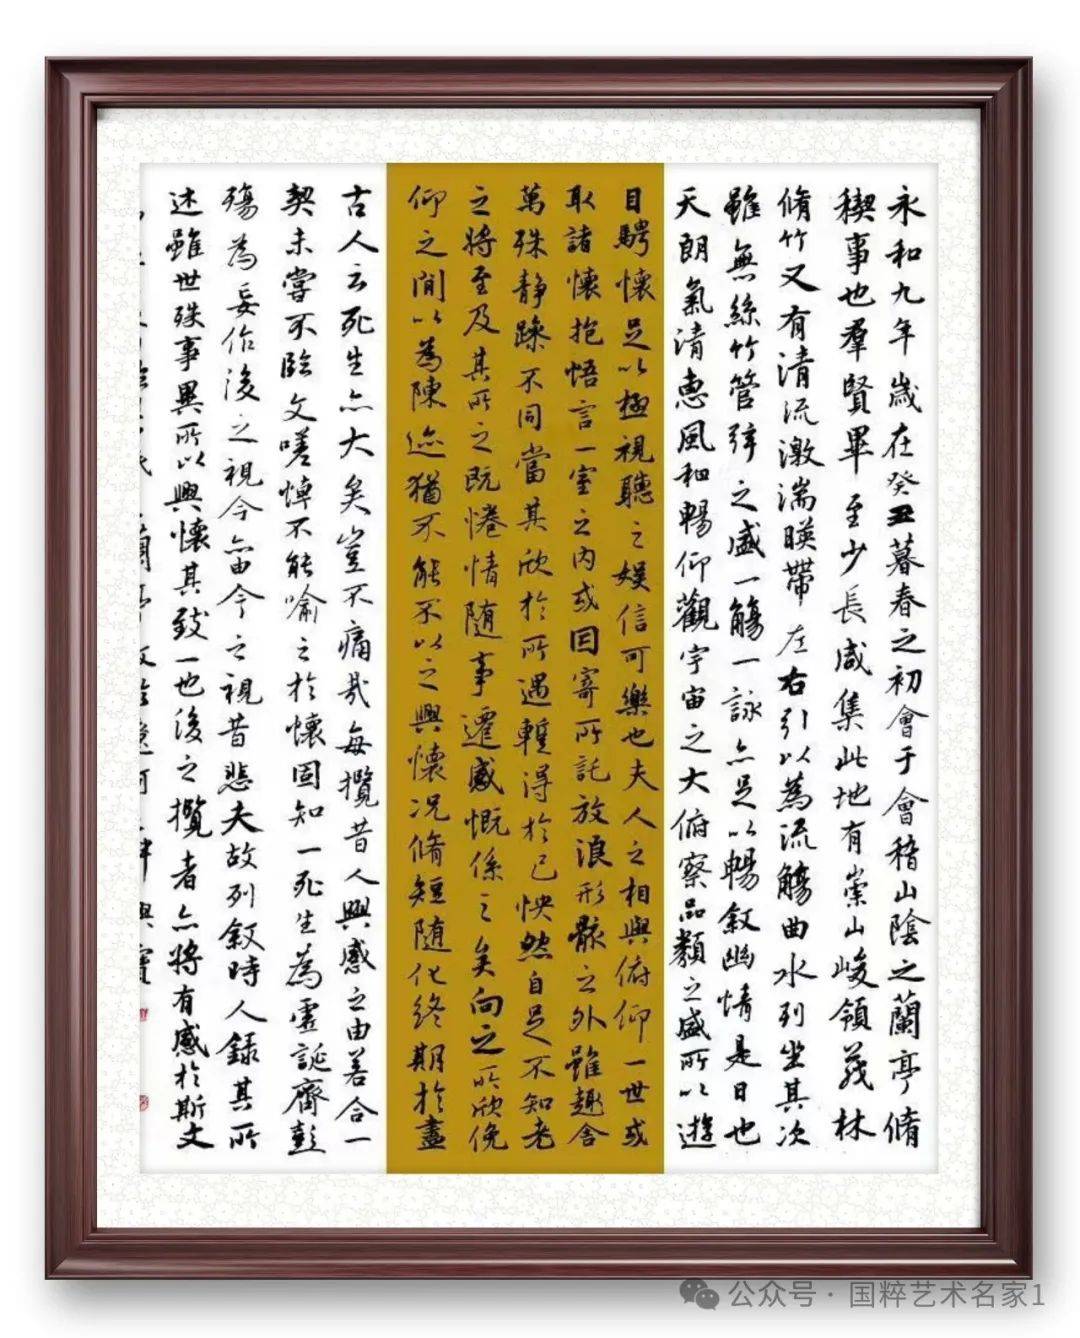 永和九年歲在癸丑暮春之初會于會稽山陰之蘭亭脩
稧事也羣賢畢至少長咸集此地有崇山峻領茂林
脩竹又有清流激湍暎帶左右引以為流觴曲水列坐其次
雖無絲竹管弦之盛一觴一詠亦足以暢叙幽情是日也
天朗氣清惠風和暢仰觀宇宙之大俯察品類之盛所以遊
目騁懷足以極視聽之娛信可樂也夫人之相與俯仰一世或
取諸懷抱悟言一室之內或因寄所託放浪形骸之外雖趣舍
萬殊静躁不同當其欣於所遇暫得於己怏然自足不知老
之將至及其所之既惓情隨事遷感慨係之矣向之所欣俛
仰之間以為陳迹猶不能不以之興懷況脩短隨化終期於盡
古人云死生亦大矣豈不痛哉每攬昔人興感之由若合一
契未嘗不臨文嗟悼不能喻之於懷固知一死生為虛誕齊彭
殤為妄作後之視今亦由今之視昔悲夫故列叙時人錄其所
述雖世殊事異所以興懷其致一也後之攬者亦將有感於斯文
公众号·国粹艺术名家1